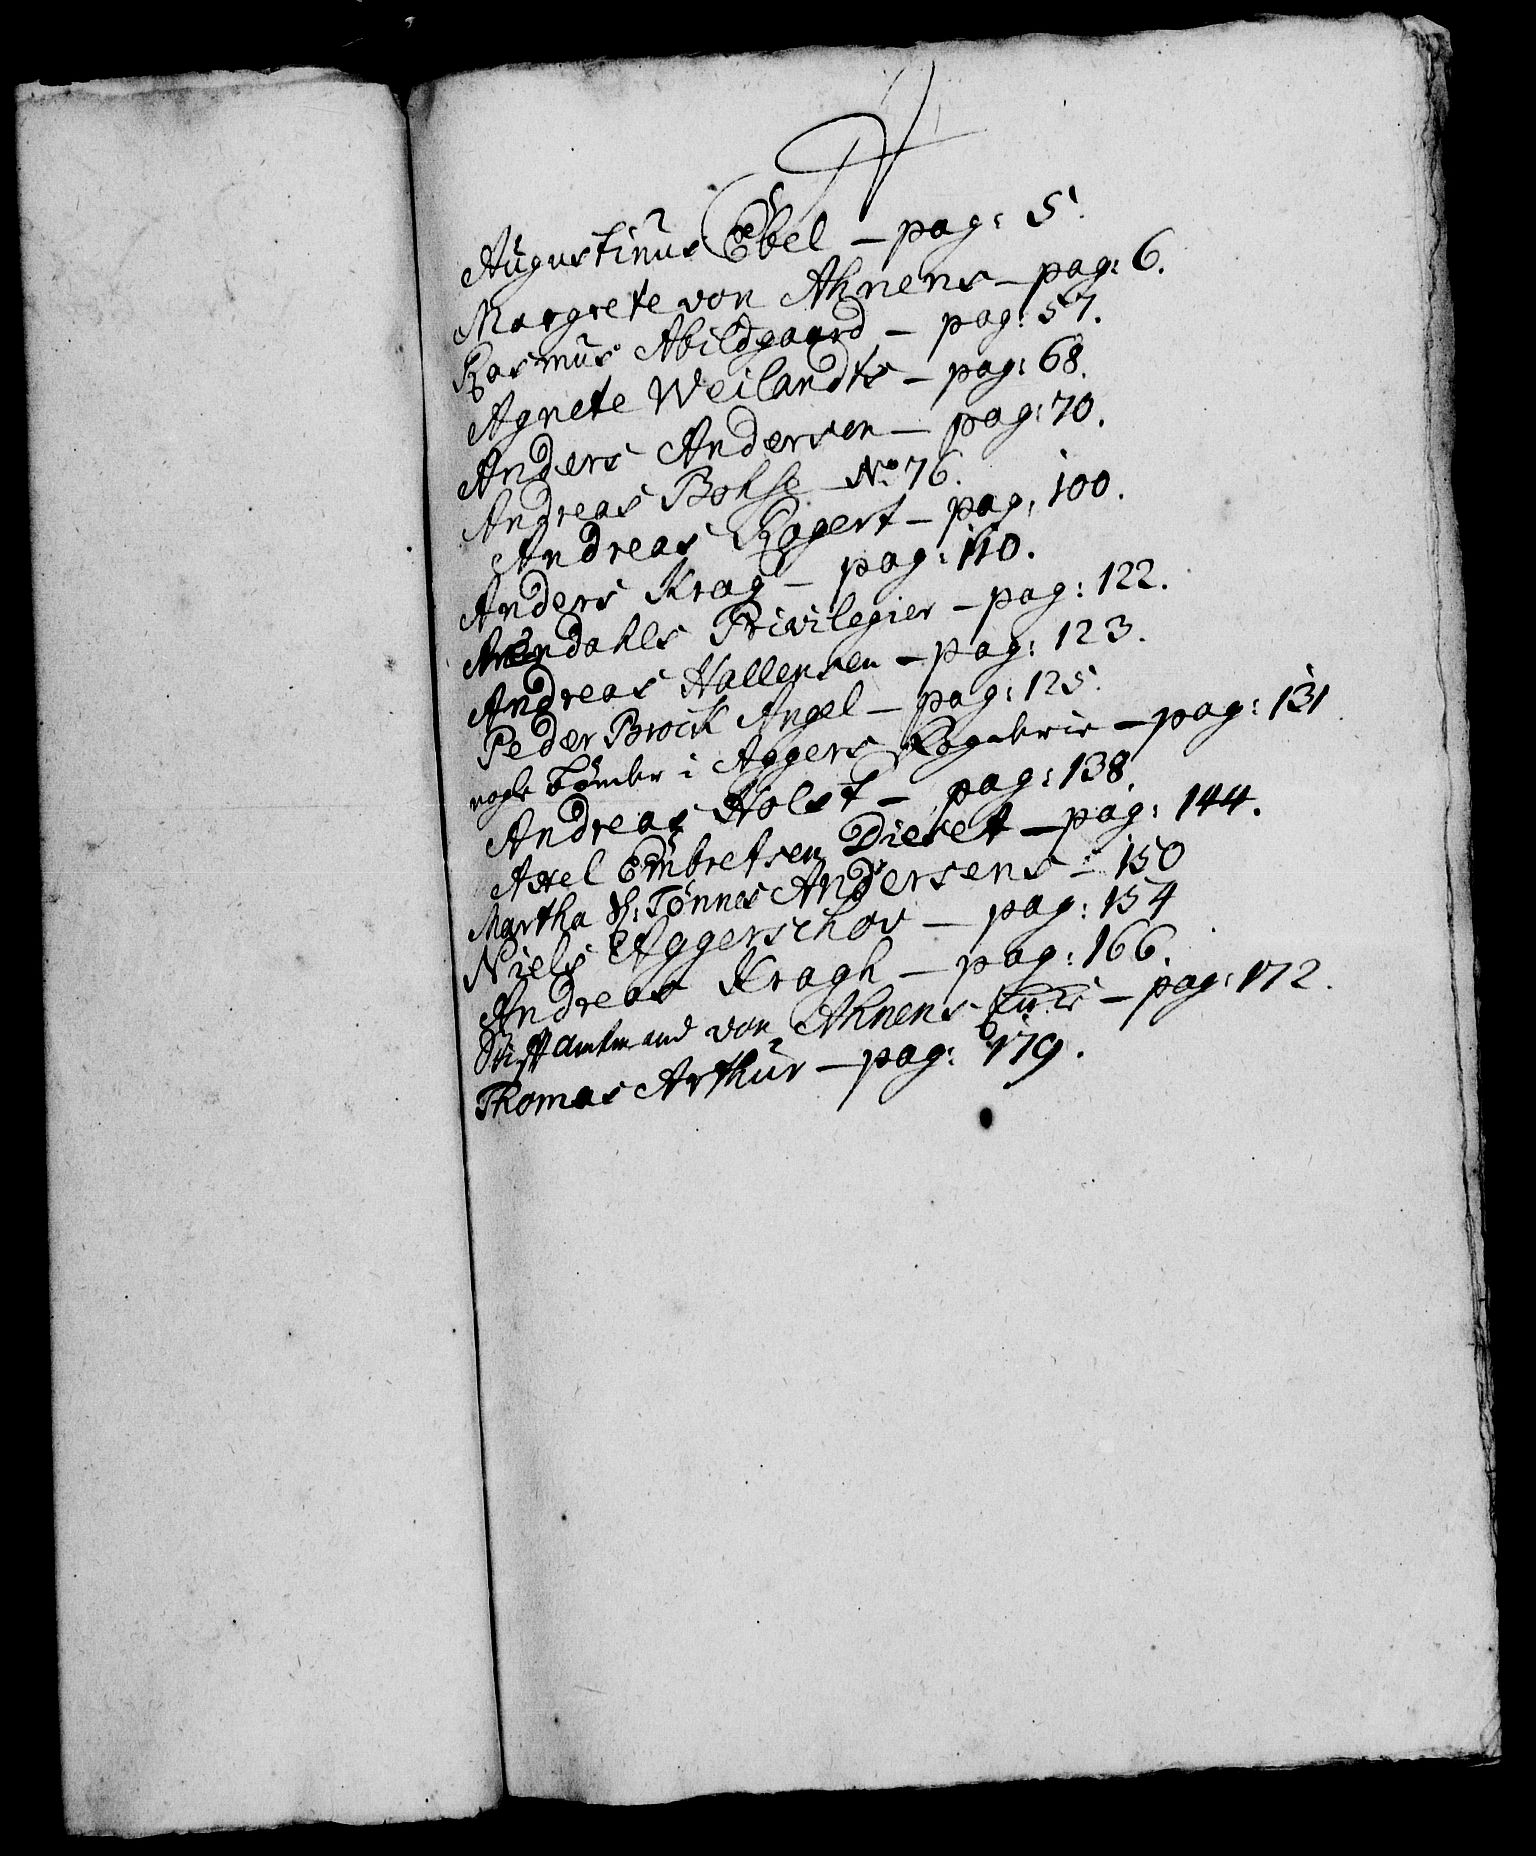 A
Augustinus Ebel – pag: 5.
Margrete von Ahnens – pag: 6.
Rasmus Abildgaard – pag: 57.
Agnete Weilandts – pag: 68.
Anders Andersen – pag: 70.
Andreas Bohse No 76.
Andreas Rogert – pag: 100.
Anders Krag – pag: 110.
Arendahls Privilegier – pag: 122.
Andreas Hallensen – pag: 123.
Peder Brock Angel – pag: 125.
nogle Bönder i Aggers Fogderie – pag: 131
Andreas Holst – pag: 138.
Axel Embretsen Dieset – pag: 144.
Martha Tönnes Andersens – 150
Niels Aggerschov – pag: 154
Andreas Kragh – pag: 166.
Stiftamtmand von Ahnens – pag: 172.
Thomas Arthur – pag: 179.